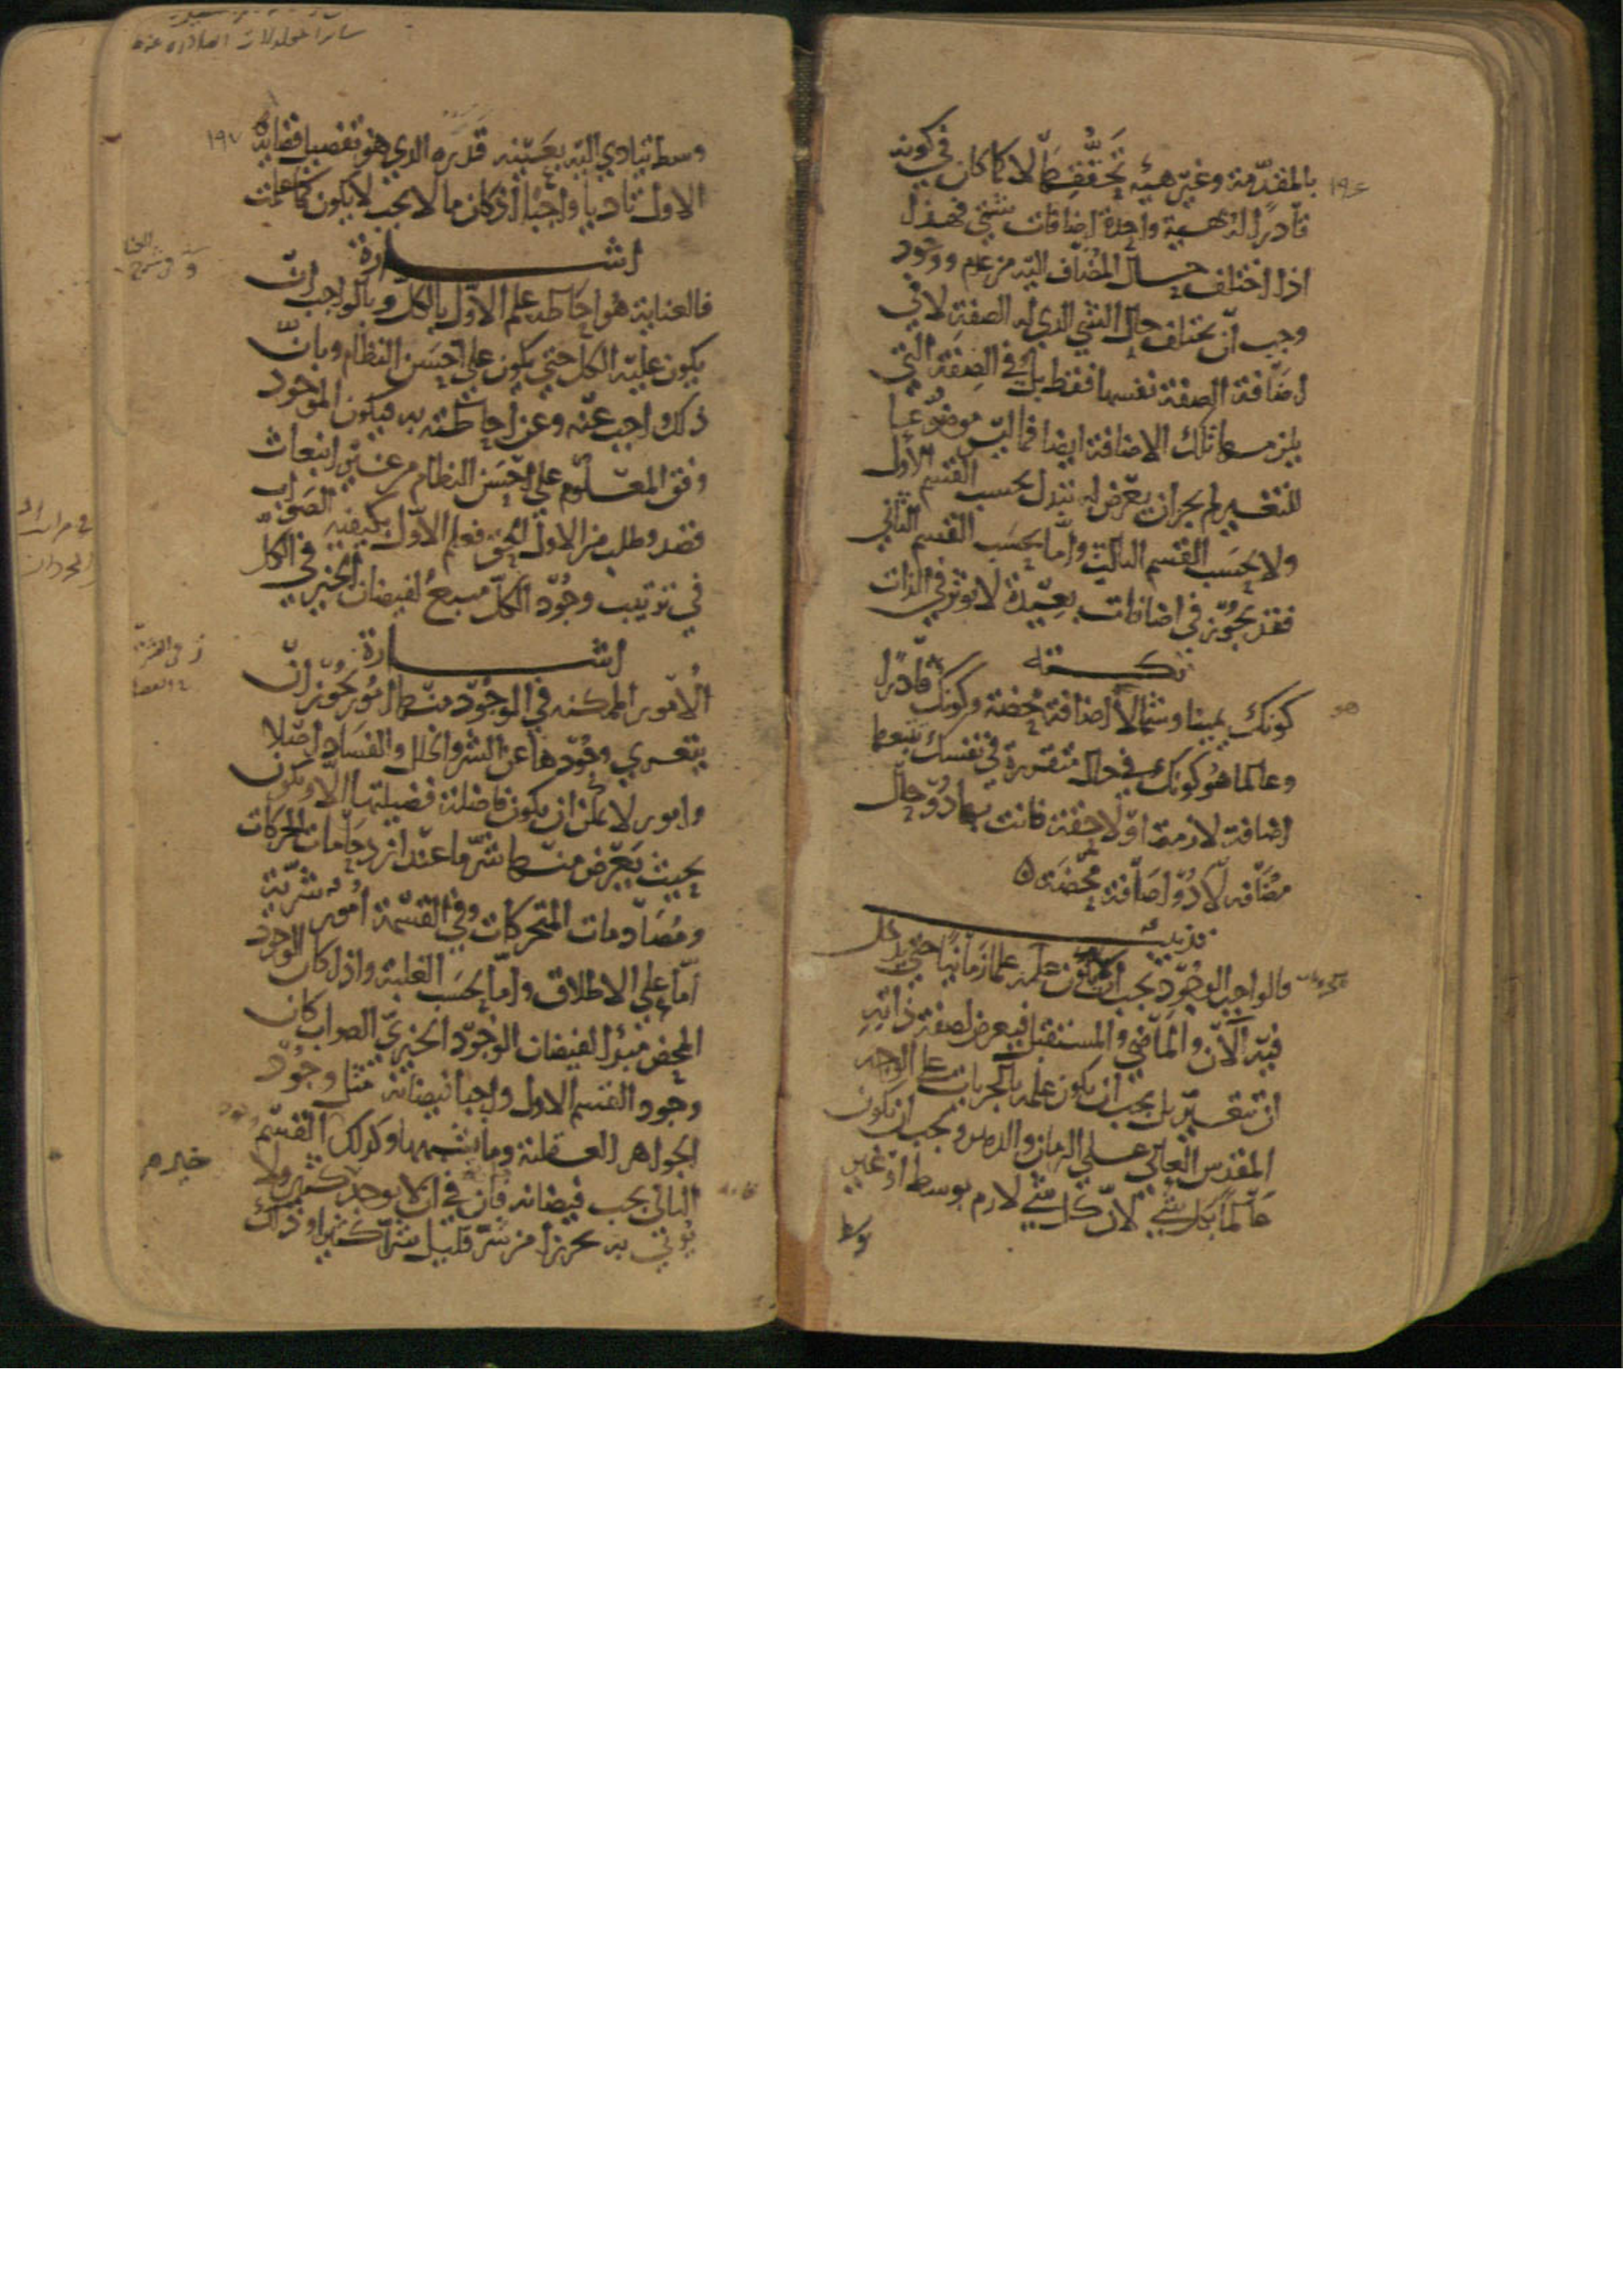 ١٩٤
بالمقدمة وغير هيئة تحققها لا كما كان في كونه
قادرا له هيئة واحدة اضافات شتى فهذا
اذا اختلف حال المضاف اليه من عدم ووجود
وجب ان يختلف حال الشي الذي له الصفة لا في
اضافة الصفة نفسها فقط بل في الصفة التي
يلزمها تلك الاضافة ايضا فما ليس موضوعا
للتغير لم يجز ان يعرض له تبدل بحسب القسم الاول
ولا بحسب القسم الثالث واما بحسب القسم الثاني
فقد يجوز في اضافات بعيدة لا تؤثر في الذات
نكتة
كونك يمينا وشمالا اضافة محضة وكونك قادرا
وعالما هو كونك في حال متقررة في نفسك تتبعها
اضافة لازمة او لاحقة فانت بهما ذو حال
مضافة لا ذو اضافة محضة ه
تذنيب
فالواجب الوجود يجب ان لا يكون علمه علما زمانيا حتى يدخل
فيه الآن والماضي والمستقبل فيعرض لصفة ذاته
ان تتغير بل يجب ان يكون علمه بالجزيات على الوجه
المقدس العالي على الزمان والدهر ويجب ان يكون
عالما بكل شي لان كل شي لازم بوسط او غير
سائر المعلولات الصادرة عنه
١٩٧
وسط يتادي اليه بعينه قدره الذي هو تفصيل قضايه
الاول تاديا واجبا اذ كان ما لا يجب لا يكون كما علمت
اشارة
فالعناية هو احاطة علم الاول بالكل وبالواجب ان
يكون عليه الكل حتى يكون على احسن النظام وبان
ذلك واجب عنه وعن احاطته به فيكون الموجود
وفق المعلوم على احسن النظام من غير انبعاث
قصد وطلب من الاول الحق فعلم الاول بكيفية الصواب
في ترتيب وجود الكل منبع لفيضان الخير في الكل
اشارة
الامور الممكنة في الوجود منها امور يجوز ان
يتعرى وجودها عن الشر والخلل والفساد اصلا
وامور لا يمكن ان يكون فاضلة فضيلتها الا ويكون
بحيث يعرض منها شر ما عند ازدحامات الحركات
ومصادمات المتحركات وفي القسمة امور شرية
اما على الاطلاق واما بحسب الغلبة واذا كان الجود
المحض مبدءا لفيضان الوجود الخيري الصواب كان
وجود القسم الاول واجبا فيضانه مثل وجود
الجواهر العقلية وما يشبهها وكذلك القسم
الثاني يجب فيضانه فان في ان لا يوجد خير كثير ولا
يؤتى به تحرزا من شر قليل شرا كثيرا وذلك